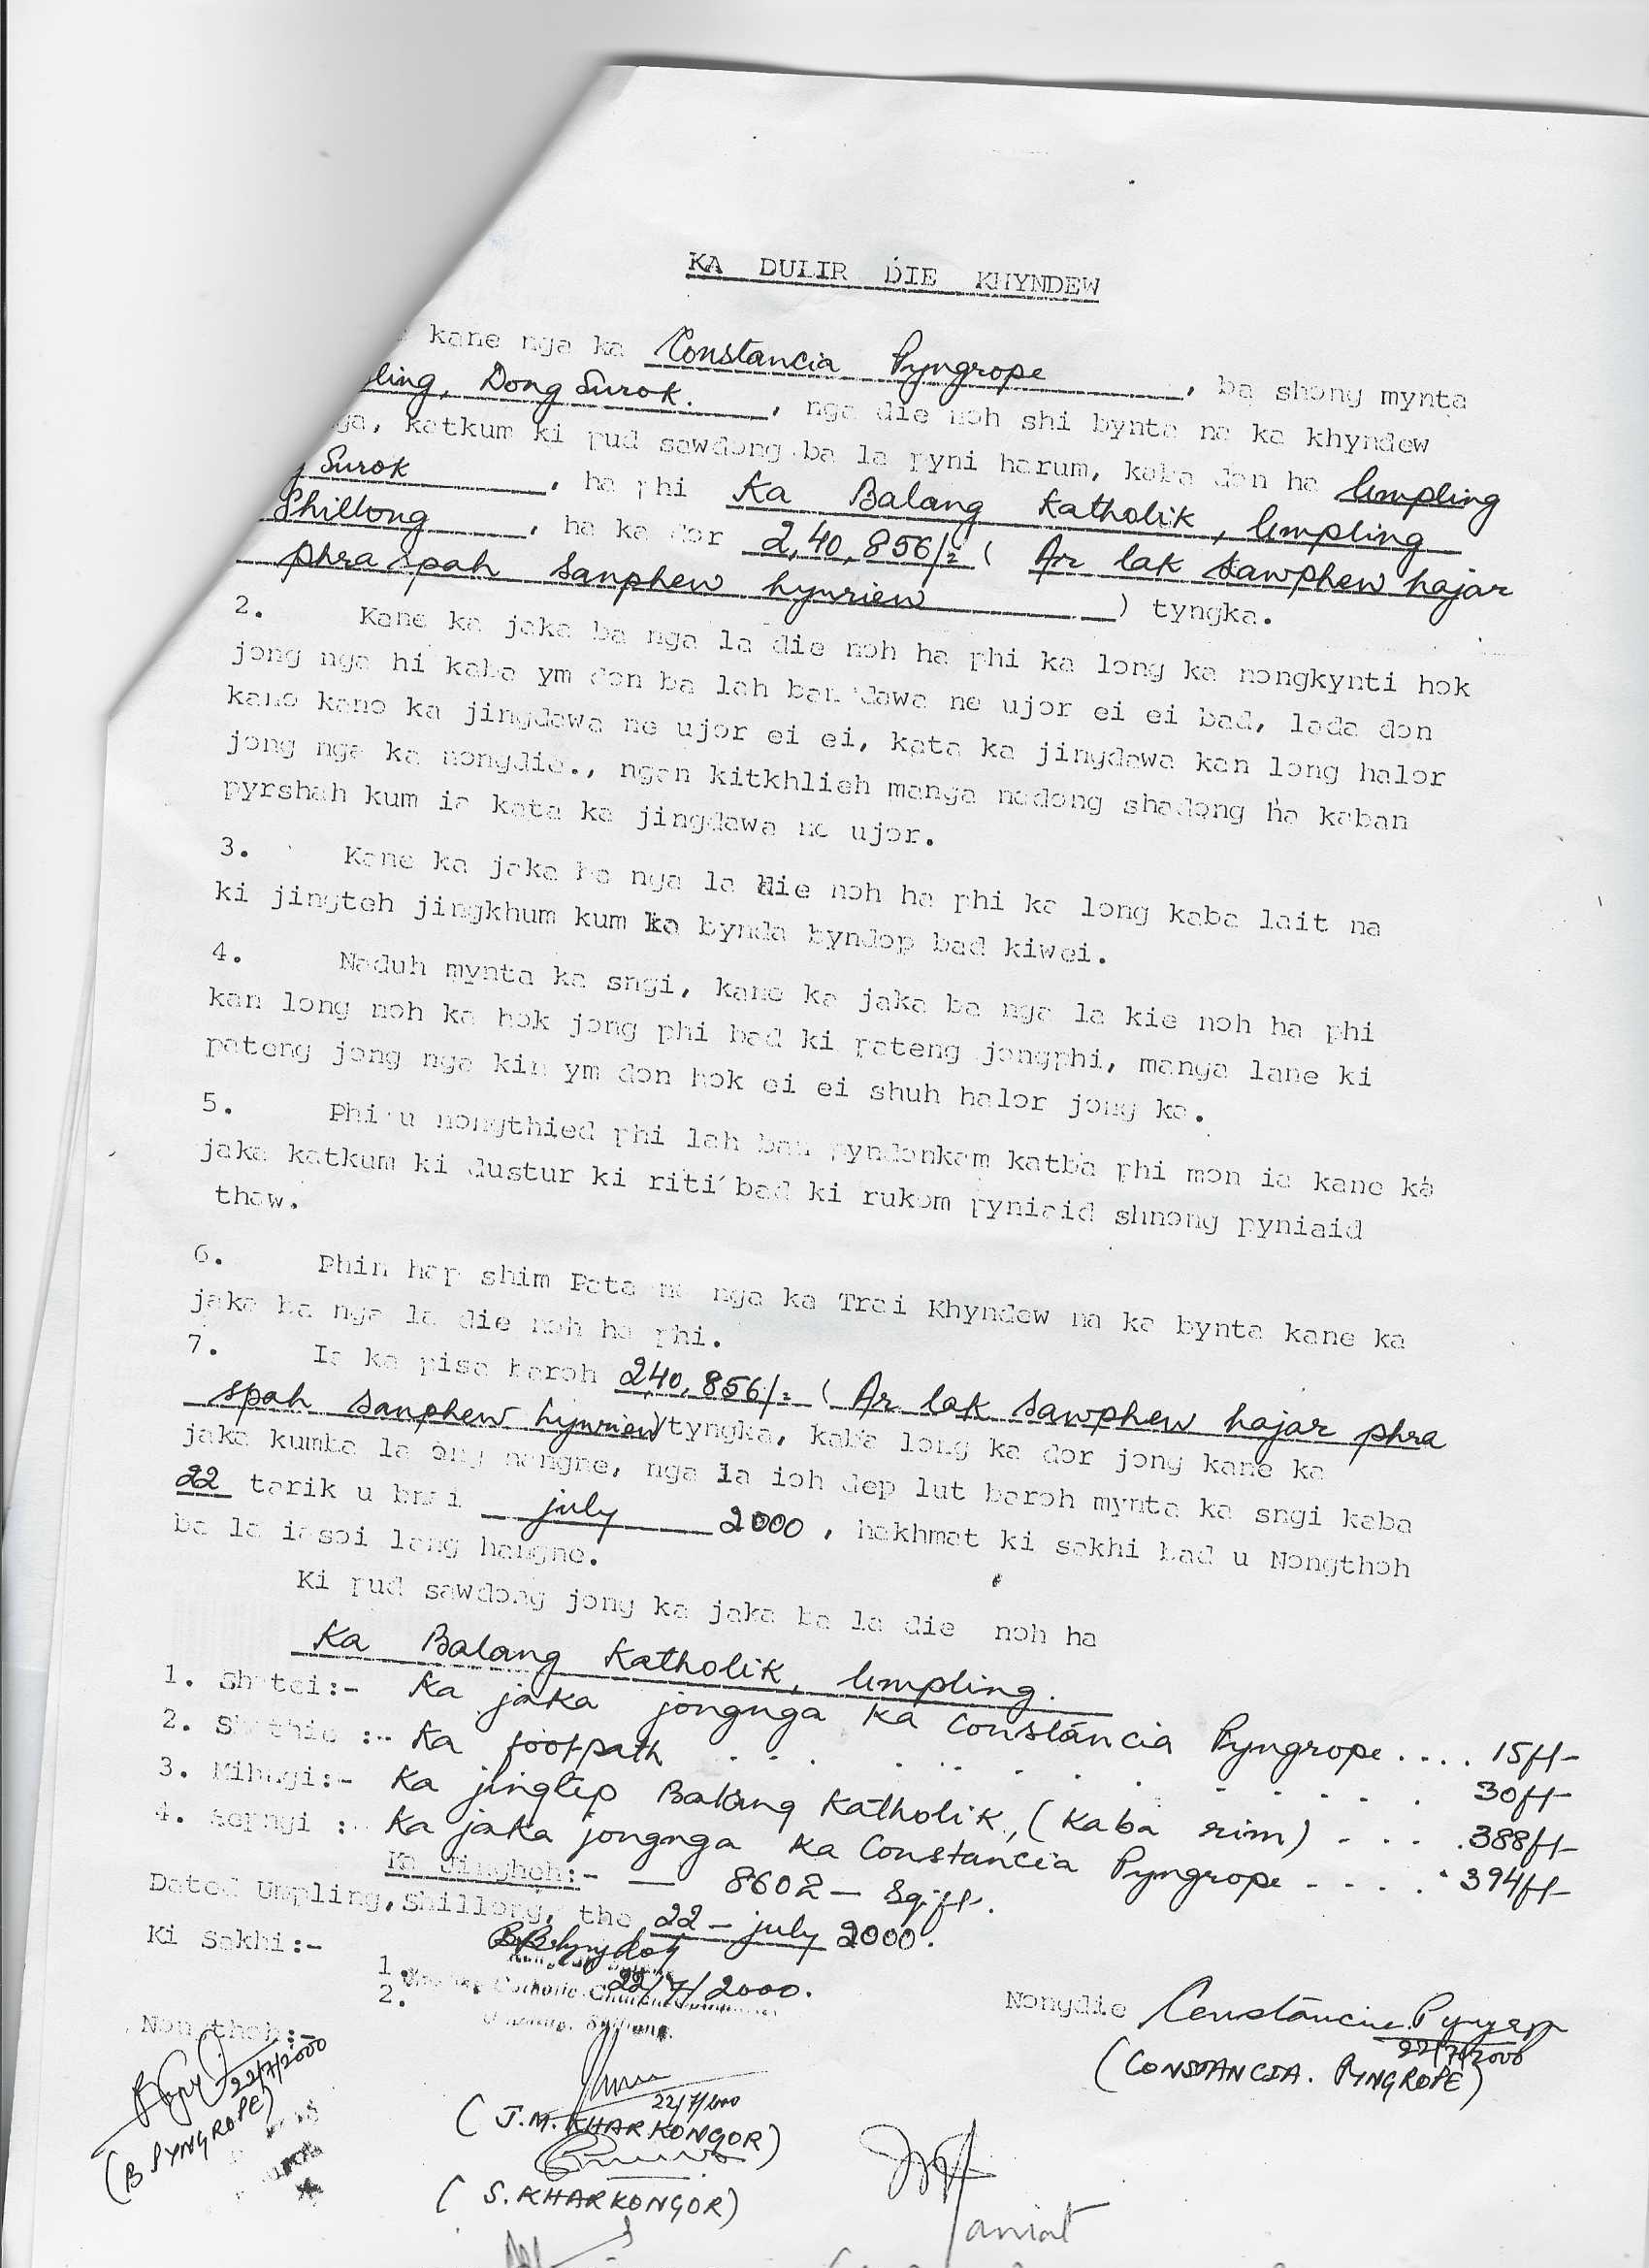 KA DULIR DIE KHYNDEW
kane nga ka Constancia Pyngrope, ba shong mynta
ling, Dong Surok., nga die noh shi bynta na ka khyndew
ga, katkum ki pud sawdong ba la pyni harum, kaba don ha Umpling
Surok, ha phi Ka Balang Katholik, Umpling
Shillong, ha ka dor 2,40,856/= ( Ar lak sawphew hajar
phra spah sanphew hynriew ) tyngka.
2. Kane ka jaka ba nga la die noh ha phi ka long ka nongkynti hok
jong nga hi kaba ym don ba lah ban dawa ne ujor ei ei bad, lada don
kano kano ka jingdawa ne ujor ei ei, kata ka jingdawa kan long halor
jong nga ka nongdie., ngan kitkhlieh manga nadong shadong ha kaban
pyrshah kum ia kata ka jingdawa ne ujor.
3. Kane ka jaka ba nga la die noh ha phi ka long kaba lait na
ki jingteh jingkhum kum ka bynda byndop bad kiwei.
4. Naduh mynta ka sngi, kane ka jaka ba nga la kie noh ha phi
kan long noh ka hok jong phi bad ki pateng jongphi, manga lane ki
pateng jong nga kin ym don hok ei ei shuh halor jong ka.
5. Phi u nongthied phi lah ban pyndonkam katba phi mon ia kane ka
jaka katkum ki dustur ki riti bad ki rukom pyniaid shnong pyniaid
thaw.
6. Phin hap shim Pata na nga ka Trai Khyndew na ka bynta kane ka
jaka ba nga la die noh ha phi.
7. Ia ka pisa baroh 2,40,856/= ( Ar lak sawphew hajar phra
spah sanphew hynriew) tyngka, kaba long ka dor jong kane ka
jaka kumba la ong hangne, nga la ioh dep lut baroh mynta ka sngi kaba
22 tarik u bnai july 2000, hakhmat ki sakhi bad u Nongthoh
ba la iasoi lang hangne.
Ki pud sawdong jong ka jaka ba la die noh ha
Ka Balang Katholik, Umpling.
1. Shatei:- Ka jaka jongnga ka Constancia Pyngrope.... 15ft
2. Shathie :- Ka footpath ............ 30ft
3. Mihngi:- Ka jingtep Balang Katholik, (Kaba rim) .... 388ft
4. Sepngi :- Ka jaka jongnga ka Constancia Pyngrope .... 394ft
Ka Jingheh:- — 8602 — Sq.ft.
Dated Umpling, Shillong, the 22 – july 2000.
Ki Sakhi:-
1.
22/7/2000.
2.
Nongdie Constancia Pyngrope
22/7/2000
(CONSTANCIA. PYNGROPE)
Nongthoh:-
22/7/2000
(B PYNGROPE)
22/7/2000
(J.M. KHARKONGOR)
(S. KHARKONGOR)